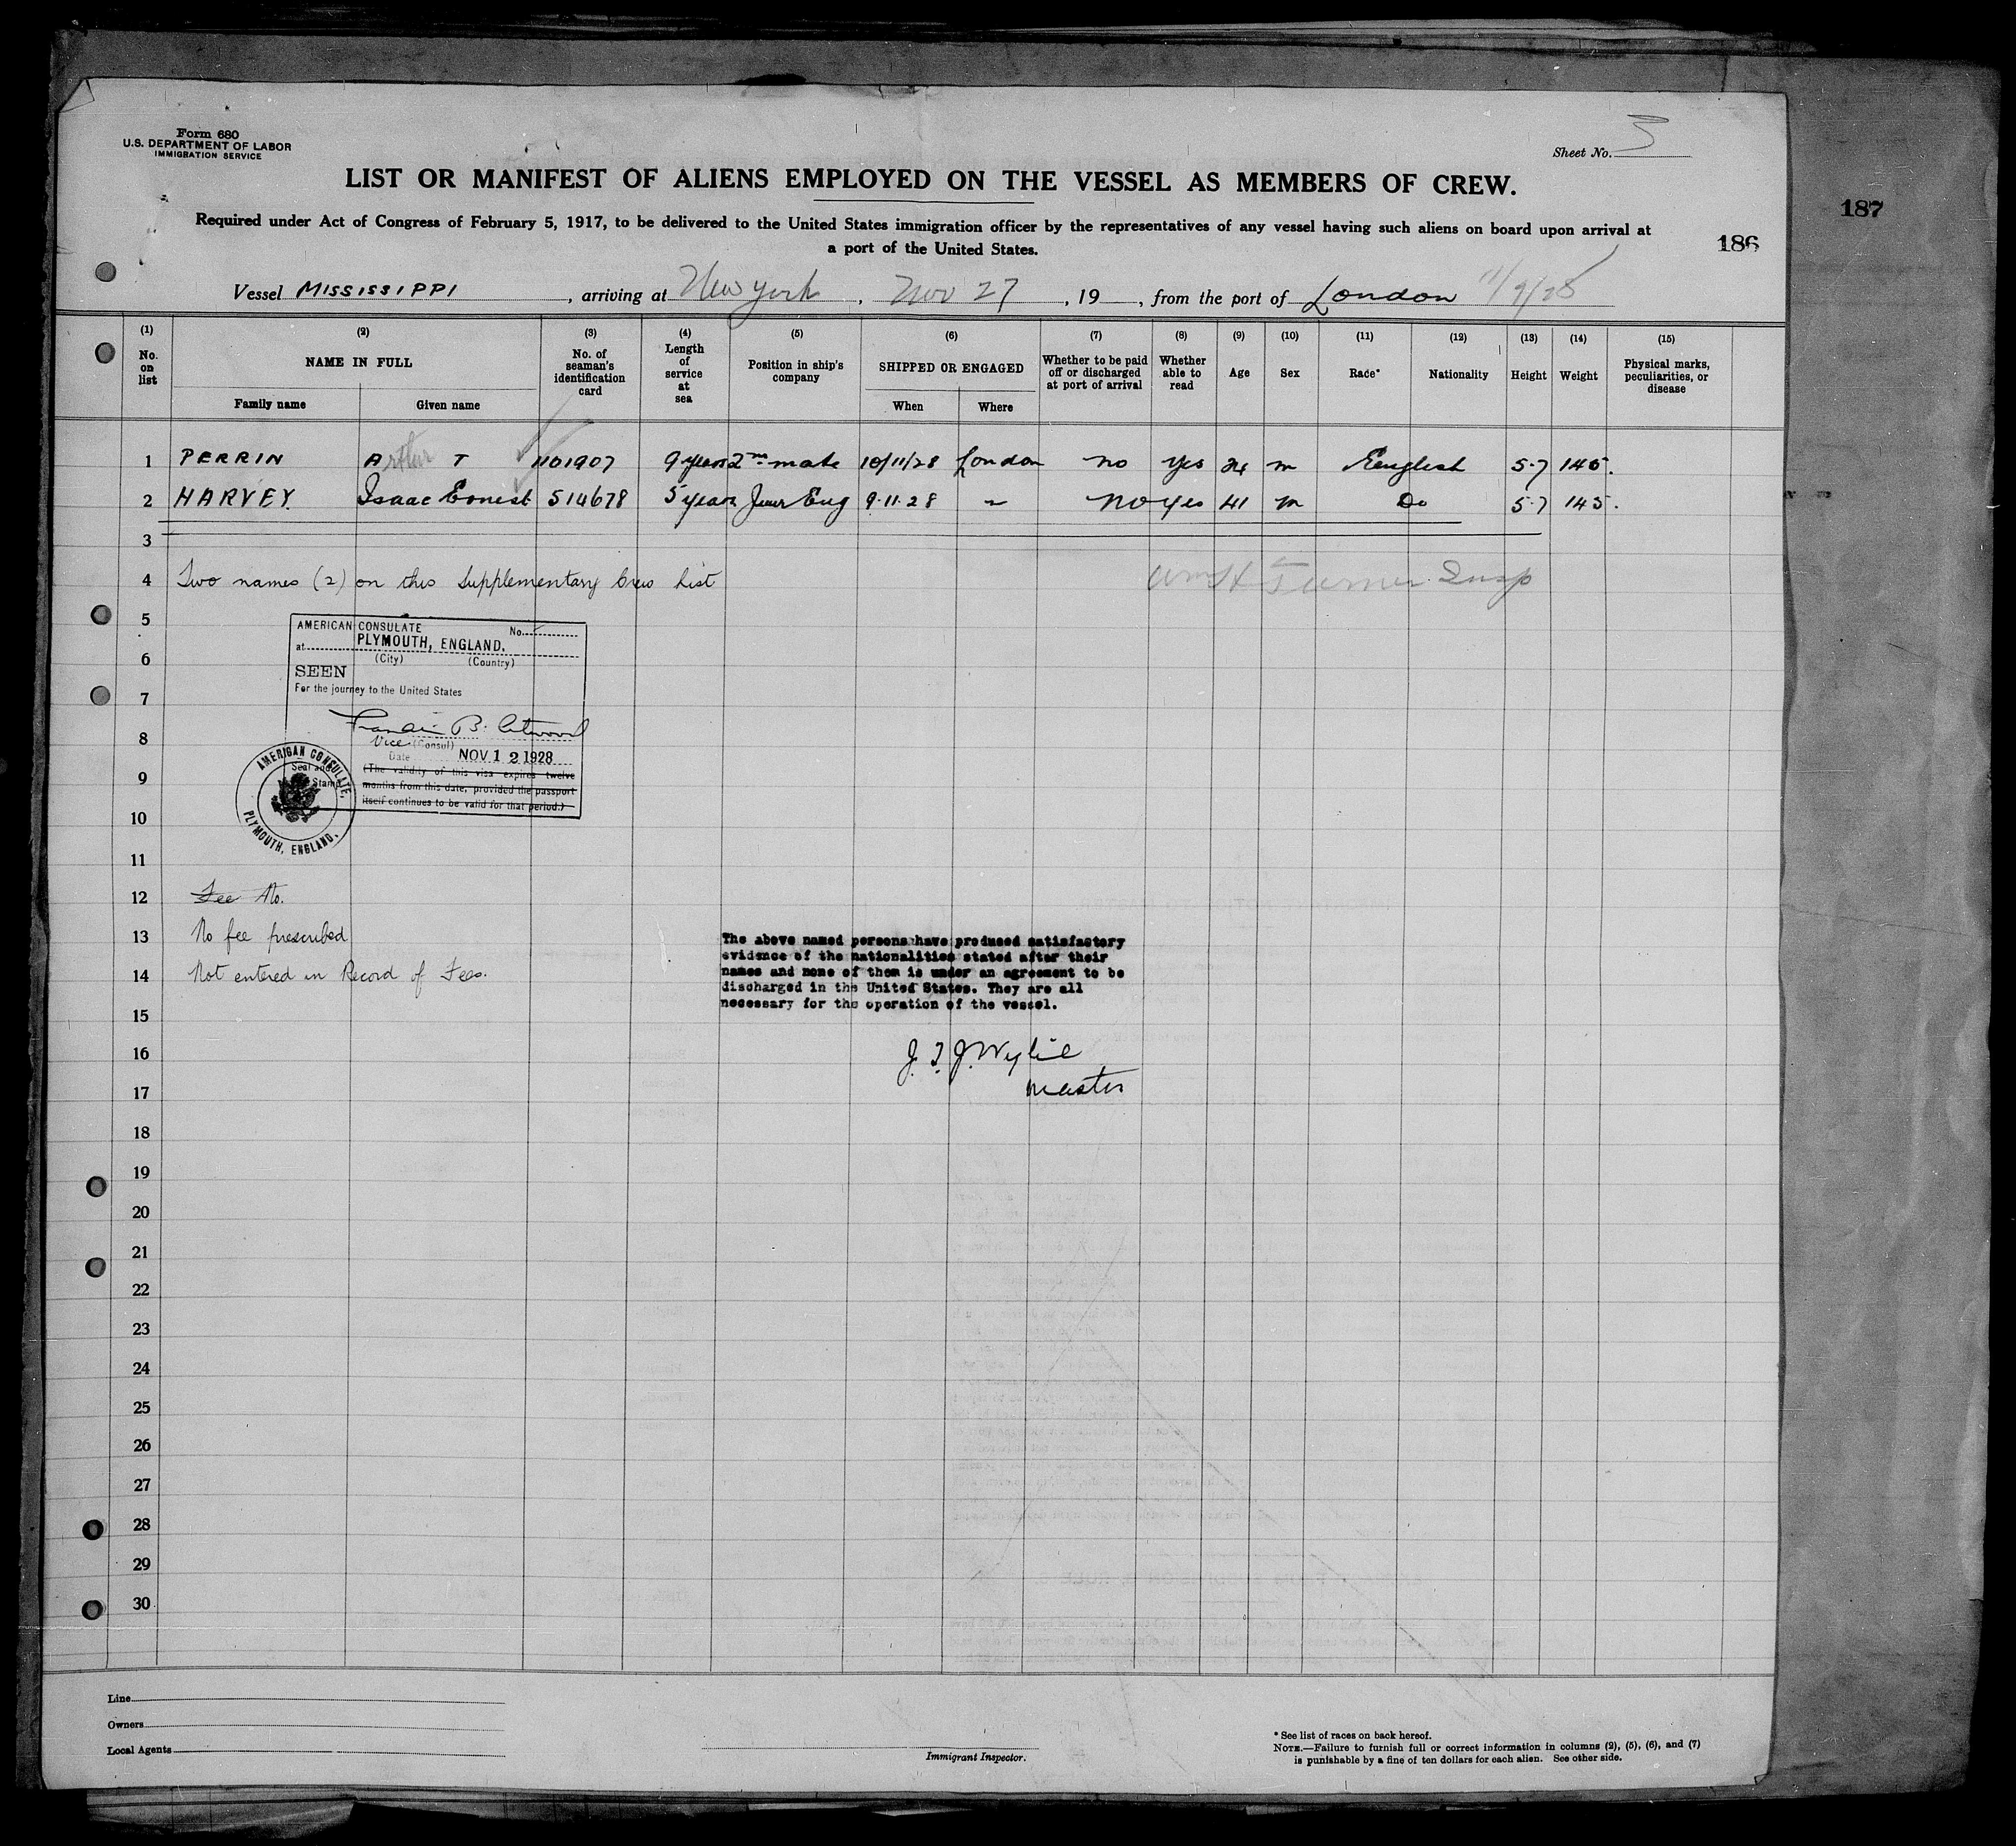 Form 680
U.S. DEPARTMENT OF LABOR
IMMIGRATION SERVICE
Sheet No. 3
LIST OR MANIFEST OF ALIENS EMPLOYED ON THE VESSEL AS MEMBERS OF CREW.
Required under Act of Congress of February 5, 1917, to be delivered to the United States immigration officer by the representatives of any vessel having such aliens on board upon arrival at
a port of the United States.
187
186
Vessel MISSISSIPPI, arriving at New York, Nov 27, 19, from the port of London 11/9/28
(1) (2) (3) (4) (5) (6) (7) (8) (9) (10) (11) (12) (13) (14) (15)
No. on list NAME IN FULL No. of seaman's identification card Length of service at sea Position in ship's company SHIPPED OR ENGAGED Whether to be paid off or discharged at port of arrival Whether able to read Age Sex Race* Nationality Height Weight Physical marks, peculiarities, or disease
Family name Given name When Where
1 PERRIN Arthur T 1101907 9 years 2nd mate 10/11/28 London no yes 24 m English 5-7 145.
2 HARVEY. Isaac Ernest 514678 5 years Junr Eng 9-11-28 " No yes 41 m Do 5-7 145.
3
4 Two names (2) on this Supplementary Crew List
Wm H Turner. Insp
5
6
7
8
9
10
11
AMERICAN CONSULATE No.
at PLYMOUTH, ENGLAND.
(City) (Country)
SEEN
For the journey to the United States
Francis B. Atwood
Vice (Consul)
Date NOV 12 1928
(The validity of this visa expires twelve
months from this date, provided the passport
itself continues to be valid for that period.)
Seal and
Stamp
AMERICAN CONSULATE,
PLYMOUTH, ENGLAND.
12 Fee No.
13 No fee prescribed
14 Not entered in Record of Fees.
The above named persons have produced satisfactory
evidence of the nationalities stated after their
names and none of them is under an agreement to be
discharged in the United States. They are all
necessary for the operation of the vessel.
15
16 J. T. J. Wylie
17 Master
18
19
20
21
22
23
24
25
26
27
28
29
30
Line
Owners
Local Agents
Immigrant Inspector.
* See list of races on back hereof.
NOTE.—Failure to furnish full or correct information in columns (2), (5), (6), and (7)
is punishable by a fine of ten dollars for each alien. See other side.